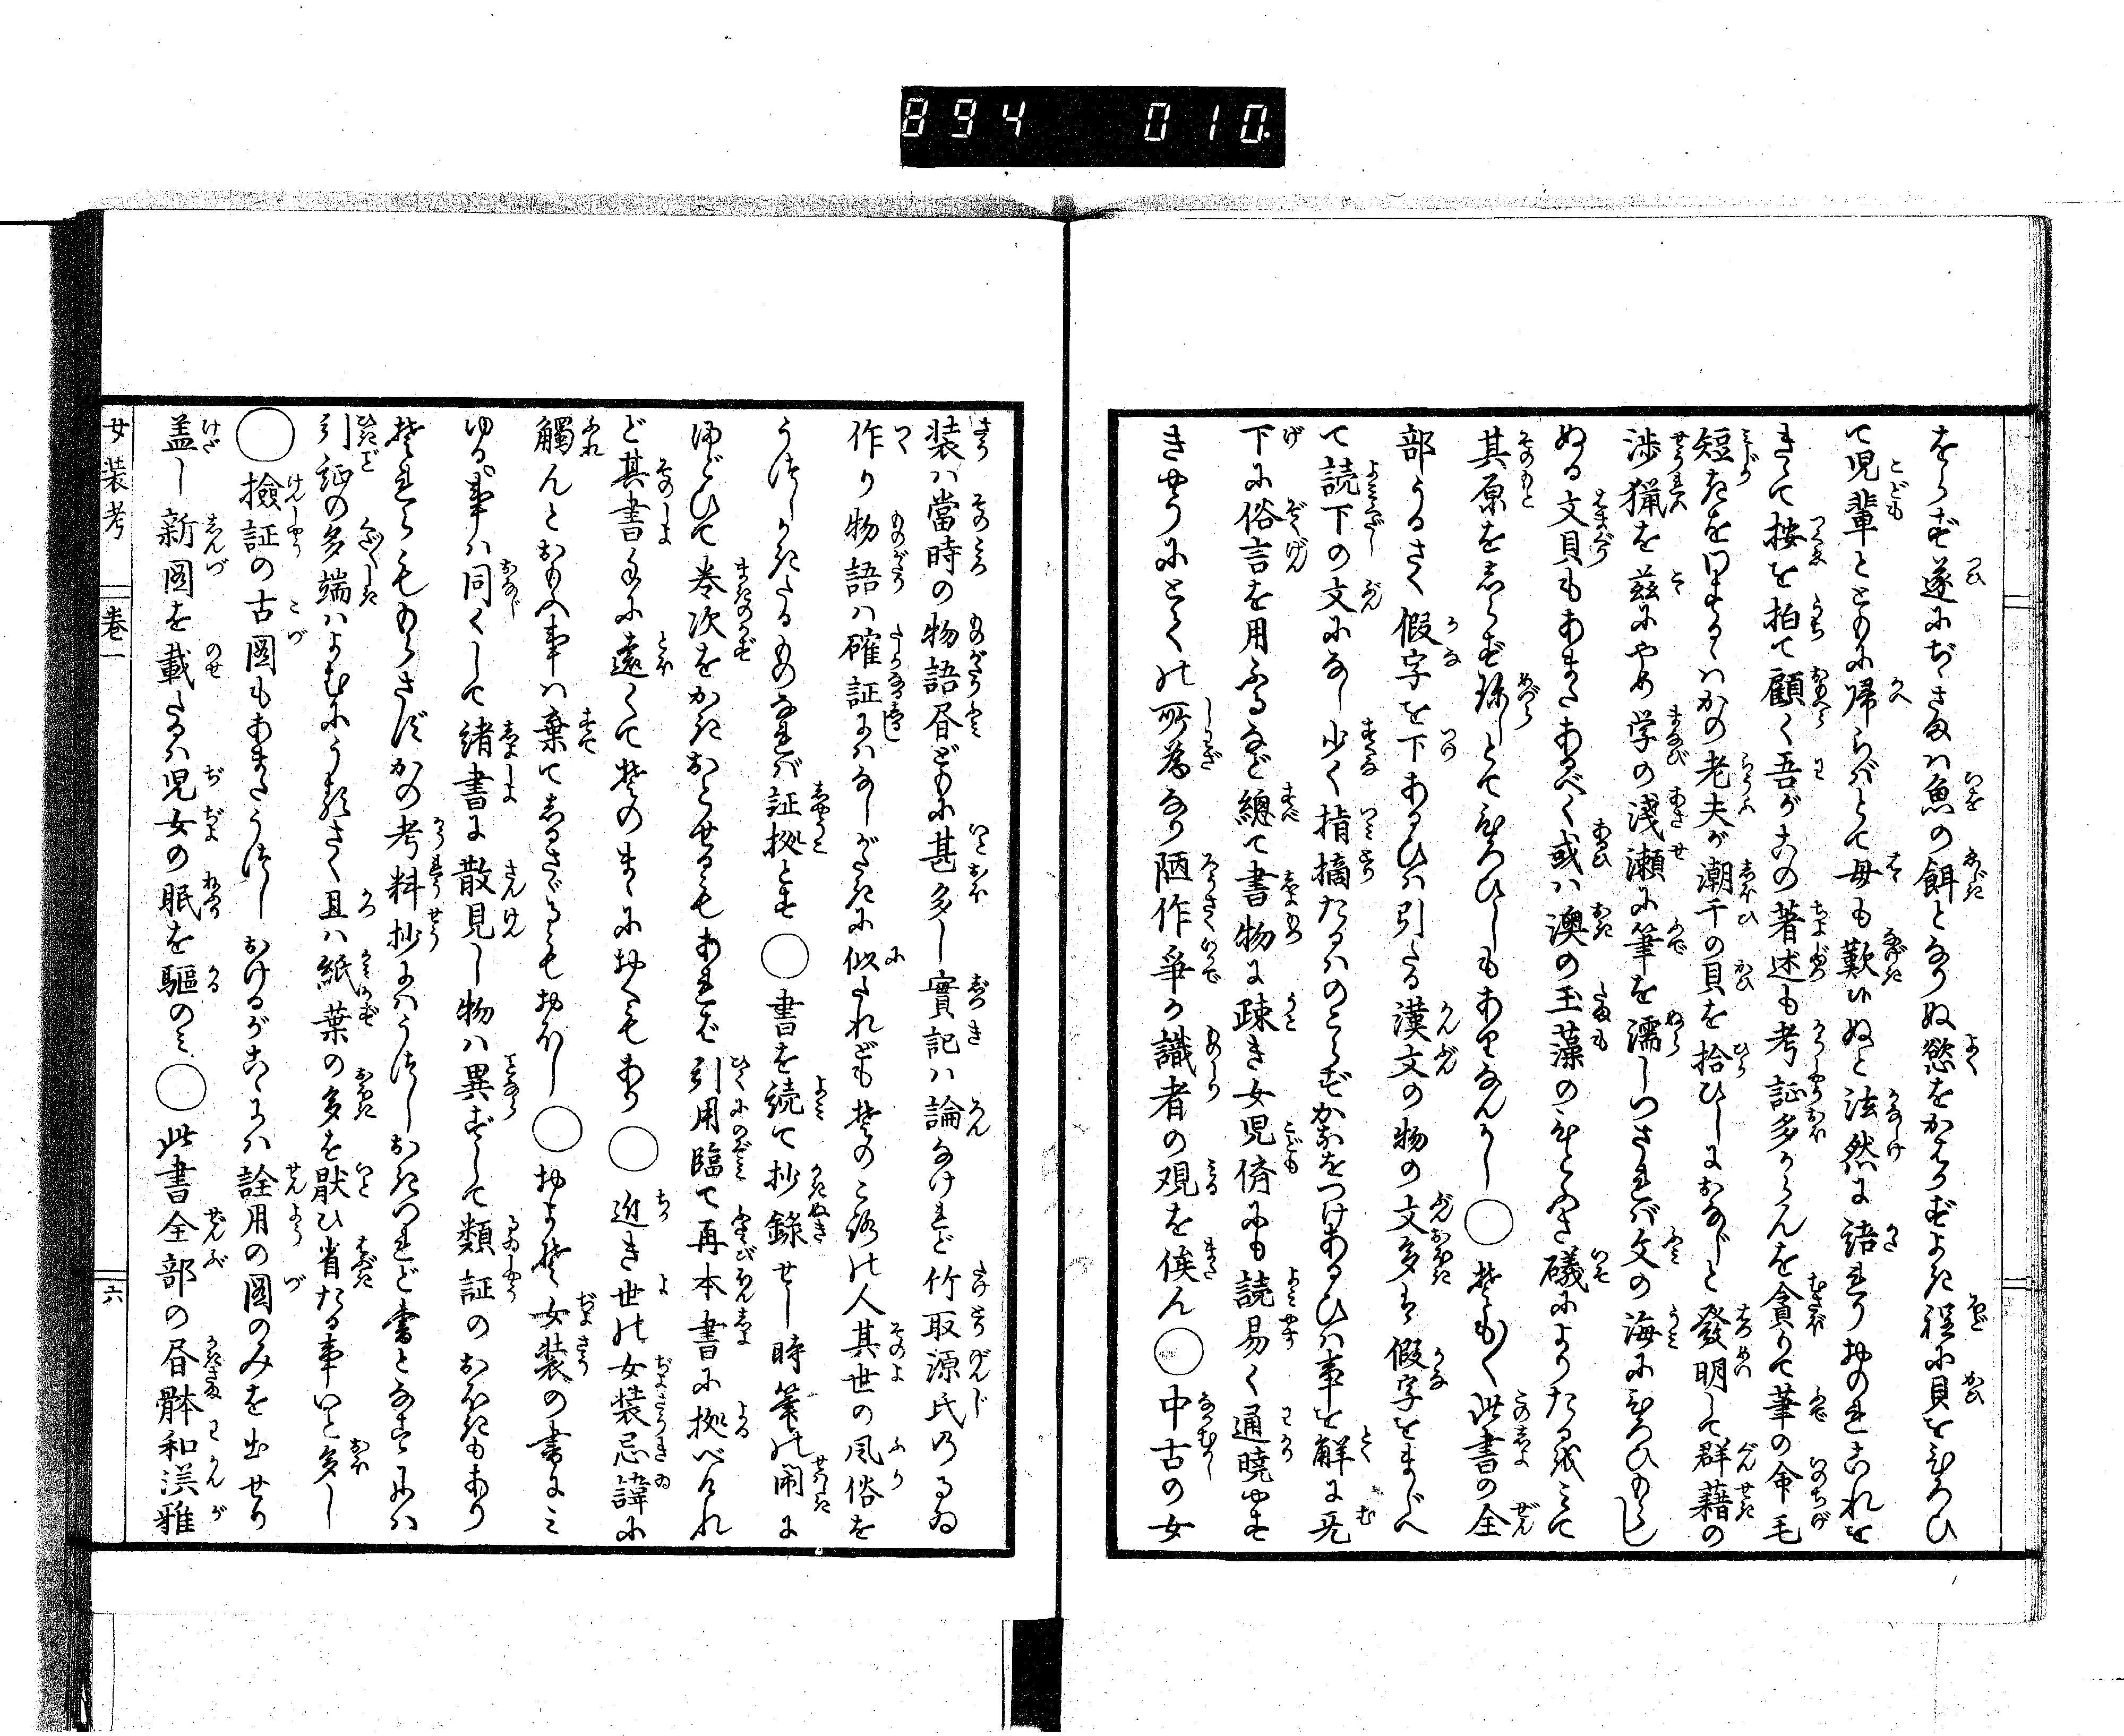 894 010.
をらず遂にぢさまハ魚の餌となりぬ慾をかもらずよき程に貝をひろひ
て児輩とともに帰らバとて母も歎きぬと泣然に語れりおのれこれを
きゝて按を拍て顧く吾がこの著述も考証多からんを貪りて筆の命毛
短きをわするゝハかの老夫が潮干の貝を拾ひしにおなじと發明して群藉の
渉猟を茲にやめ学の浅瀬に筆を濡しつされバ文の海にひろひもらし
ぬる文貝もあまたあるべく或ハ澳の玉藻の
其原をしらず珍しとてひろひしもありなんかし○そも〳〵此書の全
部うるさく假字を下あるひハ引たる漢文の物の文多くは假字をまじへ
て読下の文になし少く指摘たるハのこらずかなをつけあるひハ事を解に尭
下に俗言を用ふるなど總て書物に疎き女児儕にも読易く通曉やす
きやうにとての所為なり陋作爭か識者の観を俟ん○中古の女
装ハ當時の物語昏どもに甚多し實記ハ論なけれど竹取源氏のるゐ
作り物語ハ確証にハなしがたきに似たれどもそのころの人其世の風俗を
うつしかきたるものなれバ証拠とす○書を続て抄録せし時筆の閙に
まどひて巻次をかきおとせるもあれど引用臨て再本書に拠べけれ
ど其書手に遠くてそのまゝにおくもあり○近き世の女装忌諱に
觸んとおもふ事ハ棄てしるさゞるもおほし○およそ女装の書にミ
ゆる事ハ同くして緒書に散見し物ハ異ずして類証のおほきもあり
それらももらさずかの考料抄にハうつしおきつれど書となすにハ
引証の多端ハよむにうるさく且ハ紙葉の多を厭ひ省たる事いと多し
○撿証の古圖もあまたうつしおけるがこゝにハ詮用の圖のみを出せり
盖し新圖を載たるハ児女の眠を驅のミ○此書全部の昏躰和漢雅
女装考 卷一 六